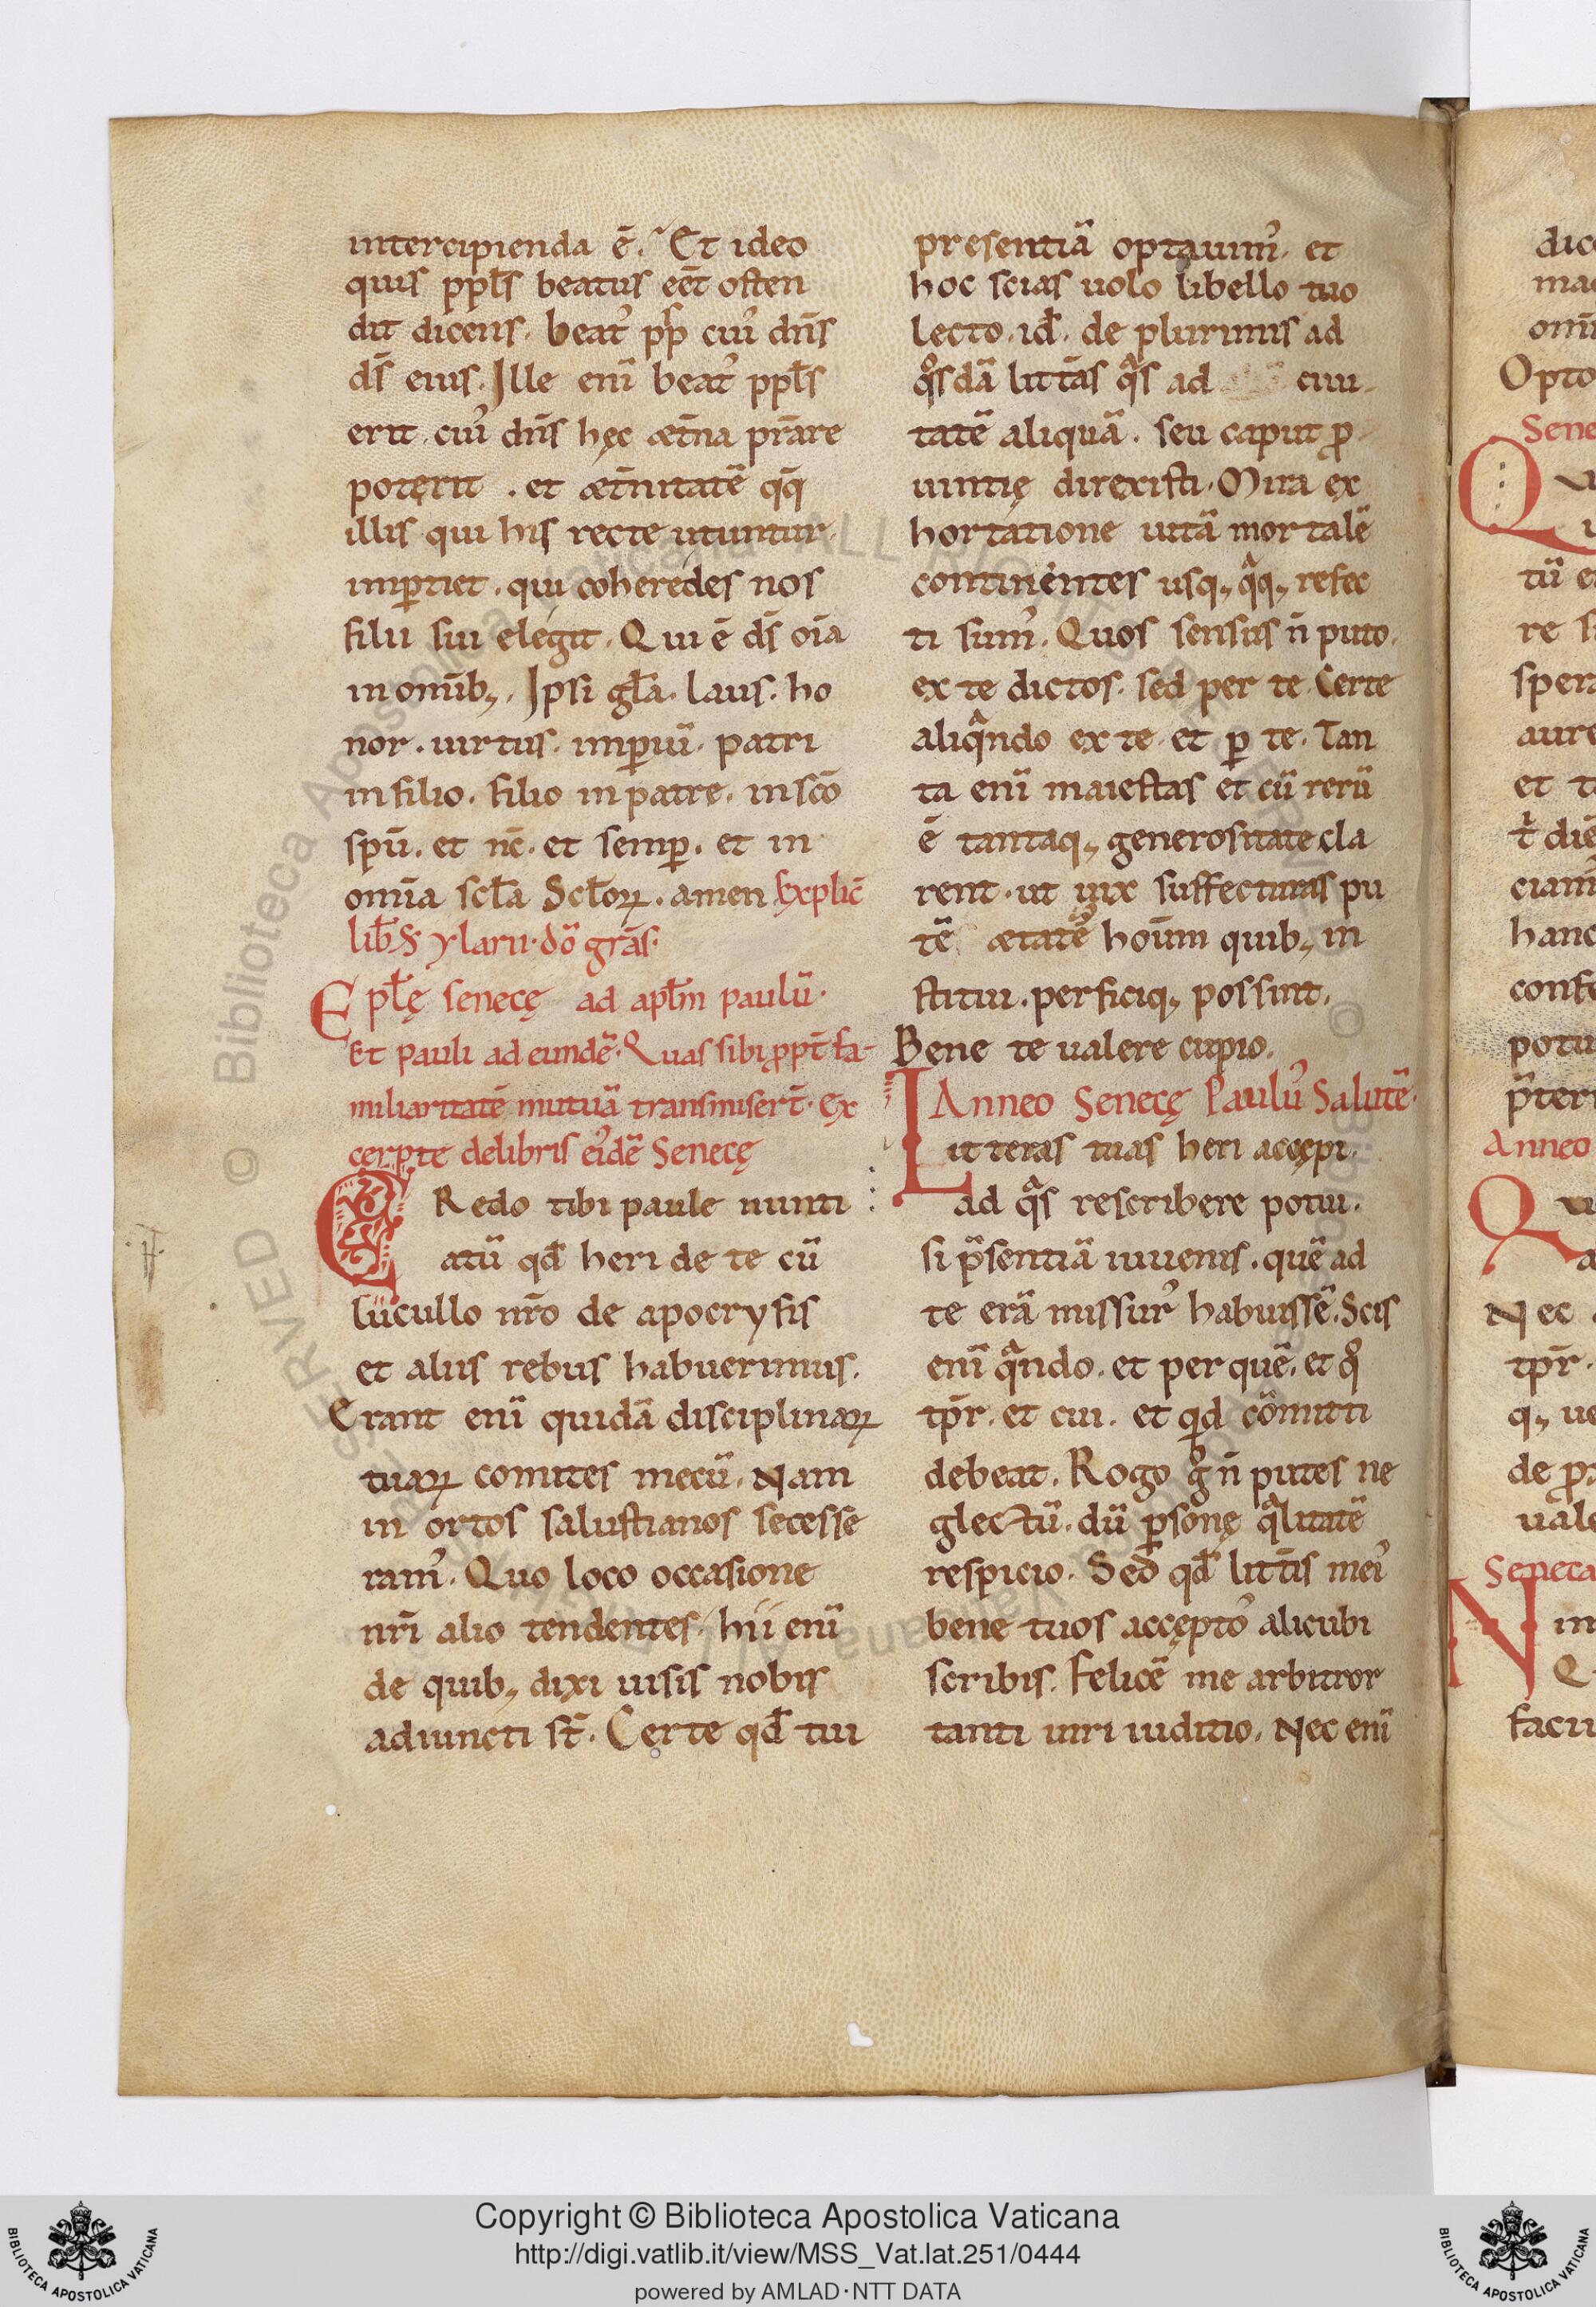 intercipienda ē. Et ideo
quis ppl̄s beatus eēt osten
dit dicens. beat᾽ pp̄s cui᾽ dn̄s
ds̄ eius. Ille enī beat᾽ ppl̄s
erit. cui᾽ dn̄s hęc æt̄na pr̄are
potęrit. et æt̄nitatē qq̄
illis qui his recte utuntur.
imꝑtiet. qui coheredes nos
filii sui elegit. Qui ē ds̄ oīa
in omīb; Ipsi gl̄a. laus. ho
nor. uirtus. imꝑiū. patri
in filio. filio in patre. in sc̄o
spū. et nc̄. et semꝑ. et in
omīa scl̄a scl̄oꝝ. amen Explic̄
lib̄ S ylarii. dō grās.
Epl̄ę senecę ad apl̄m paulū.
Et pauli ad eundē. Quas sibi ꝓpt̄ fa-
miliaritatē mutuā transmisert̄. Ex
cęrpte de libris ei᾽dē Senecę
CRedo tibi paule nunti
atū qd̄ heri de te cū
lucullo nr̄o de apocryfis
et aliis rebus habuerimus.
Erant enī quidā disciplinaꝝ
tuaꝝ comites mecū. Nam
in ortos salustianos secesse
ram᾽. Quo loco occasione
nr̄i alio tendentes hii enī
de quib; dixi uisis nobis
adiuncti st̄. Certe qd̄ tui
presentiā optauim᾽. et
hoc scias uolo libello tuo
lecto. id̄. de plurimis ad
qͦsdā litt̄as qͣs ad ciui-
tatē aliquā. seu caput ꝓ
uintię direxisti. Mira ex
hortatione uitā mortalē
continentes usq; qͣq; refec
ti sum᾽. Quos sensus n̄ puto.
ex te dictos. sed per te. Certe
aliqͣndo ex te. et ꝑ te. Tan
ta enī maiestas et cū rerū
ē tantaq; generositate cla
rent. ut uix suffecturas pu
tē ætatē hoīum quib; in
stitui. perficiq; possint.
Bene te ualere cupio.
Anneo Senecę Paulu᾽ Salutē.
Litteras tuas heri accępi.
ad qͣs rescribere potui.
si p̄sentiā iuuenis. quē ad
te erā missur᾽ habuissē. Scis
enī qͣndo. et per quē. et qͦ
tp̄r. et cui. et qid cōmitti
debeat. Rogo gͦ n̄ putes ne
glectū. dū ꝑsonę qͣlitatē
respicio. Sed qd̄ litt̄is mei᾽
bene tuos accępto᾽ alicubi
scribis. felicē me arbitror
tanti uiri iuditio. Nec enī
dic
ma
omī
Opto
Sene
Q
tū e
re s
sper
aure
et t
die
ciam
hanc
conf
potu
p̄ter
Anneo
Q
Nec
tp̄r.
q; ue
de pr
uale
Seneca
N in
Q
facu
Copyright © Biblioteca Apostolica Vaticana
http://digi.vatlib.it/view/MSS_Vat.lat.251/0444
powered by AMLAD·NTT DATA
BIBLIOTECA APOSTOLICA VATICANA
BIBLIOTECA APOSTOLICA VATICANA